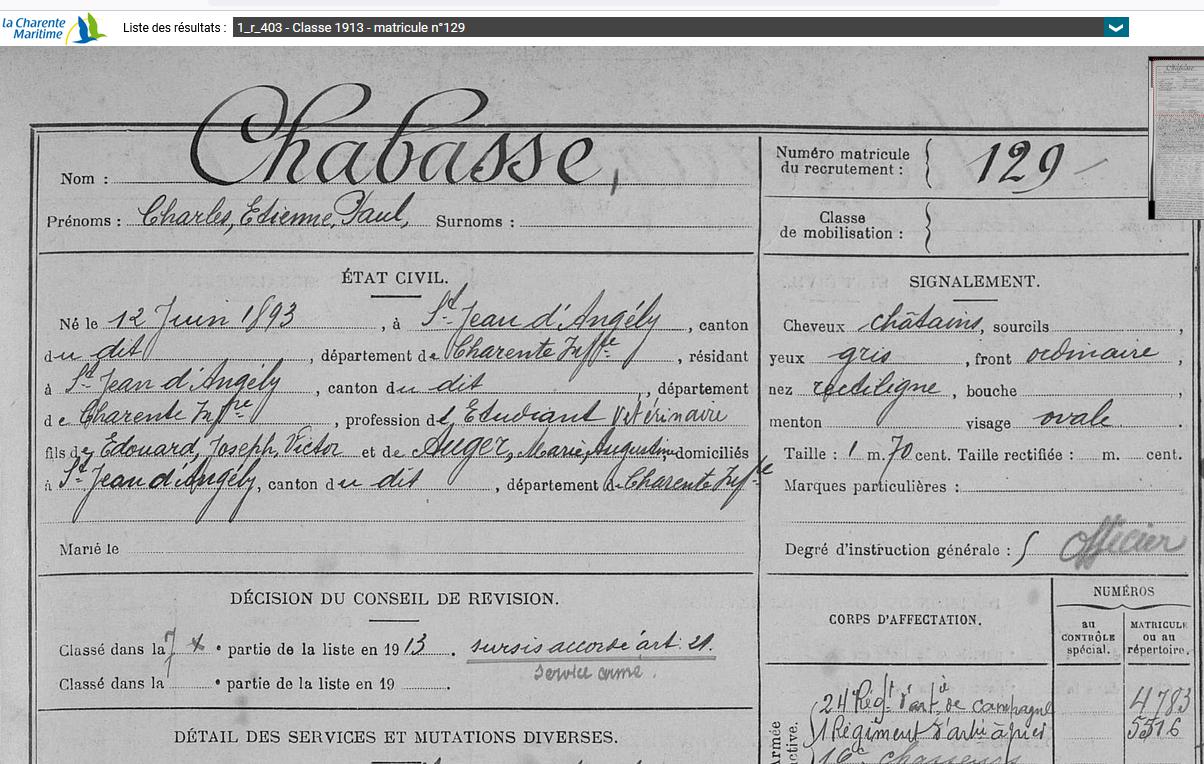 la Charente
Maritime
Liste des résultats : 1_r_403 - Classe 1913 - matricule n°129
Nom : Chabasse,
Prénoms : Charles, Etienne, Paul, Surnoms :
Numéro matricule
du recrutement : 129
Classe
de mobilisation :
ÉTAT CIVIL.
Né le 12 Juin 1893, à St Jean d'Angély, canton
du dit, département de Charente Infre, résidant
à St Jean d'Angély, canton du dit, département
de Charente Infre, profession d'Etudiant Vétérinaire
fils de Edouard, Joseph, Victor et de Auger, Marie, Augustine, domiciliés
à St Jean d'Angély, canton du dit, département de Charente Infre
Marié le
SIGNALEMENT.
Cheveux châtains, sourcils ,
yeux gris, front ordinaire,
nez rectiligne, bouche ,
menton visage ovale.
Taille : 1 m. 70 cent. Taille rectifiée : m. cent.
Marques particulières :
Degré d'instruction générale : officier
DÉCISION DU CONSEIL DE REVISION.
Classé dans la 7 e partie de la liste en 1913. sursis accordé art. 21.
service armé.
Classé dans la e partie de la liste en 19 .
DÉTAIL DES SERVICES ET MUTATIONS DIVERSES.
CORPS D'AFFECTATION.
NUMÉROS
au
CONTRÔLE
spécial.
MATRICULE
ou au
répertoire.
Armée
active.
24 Régt d'artie de campagne 4783
1 Régiment d'artie à pied 5516
16e chasseurs